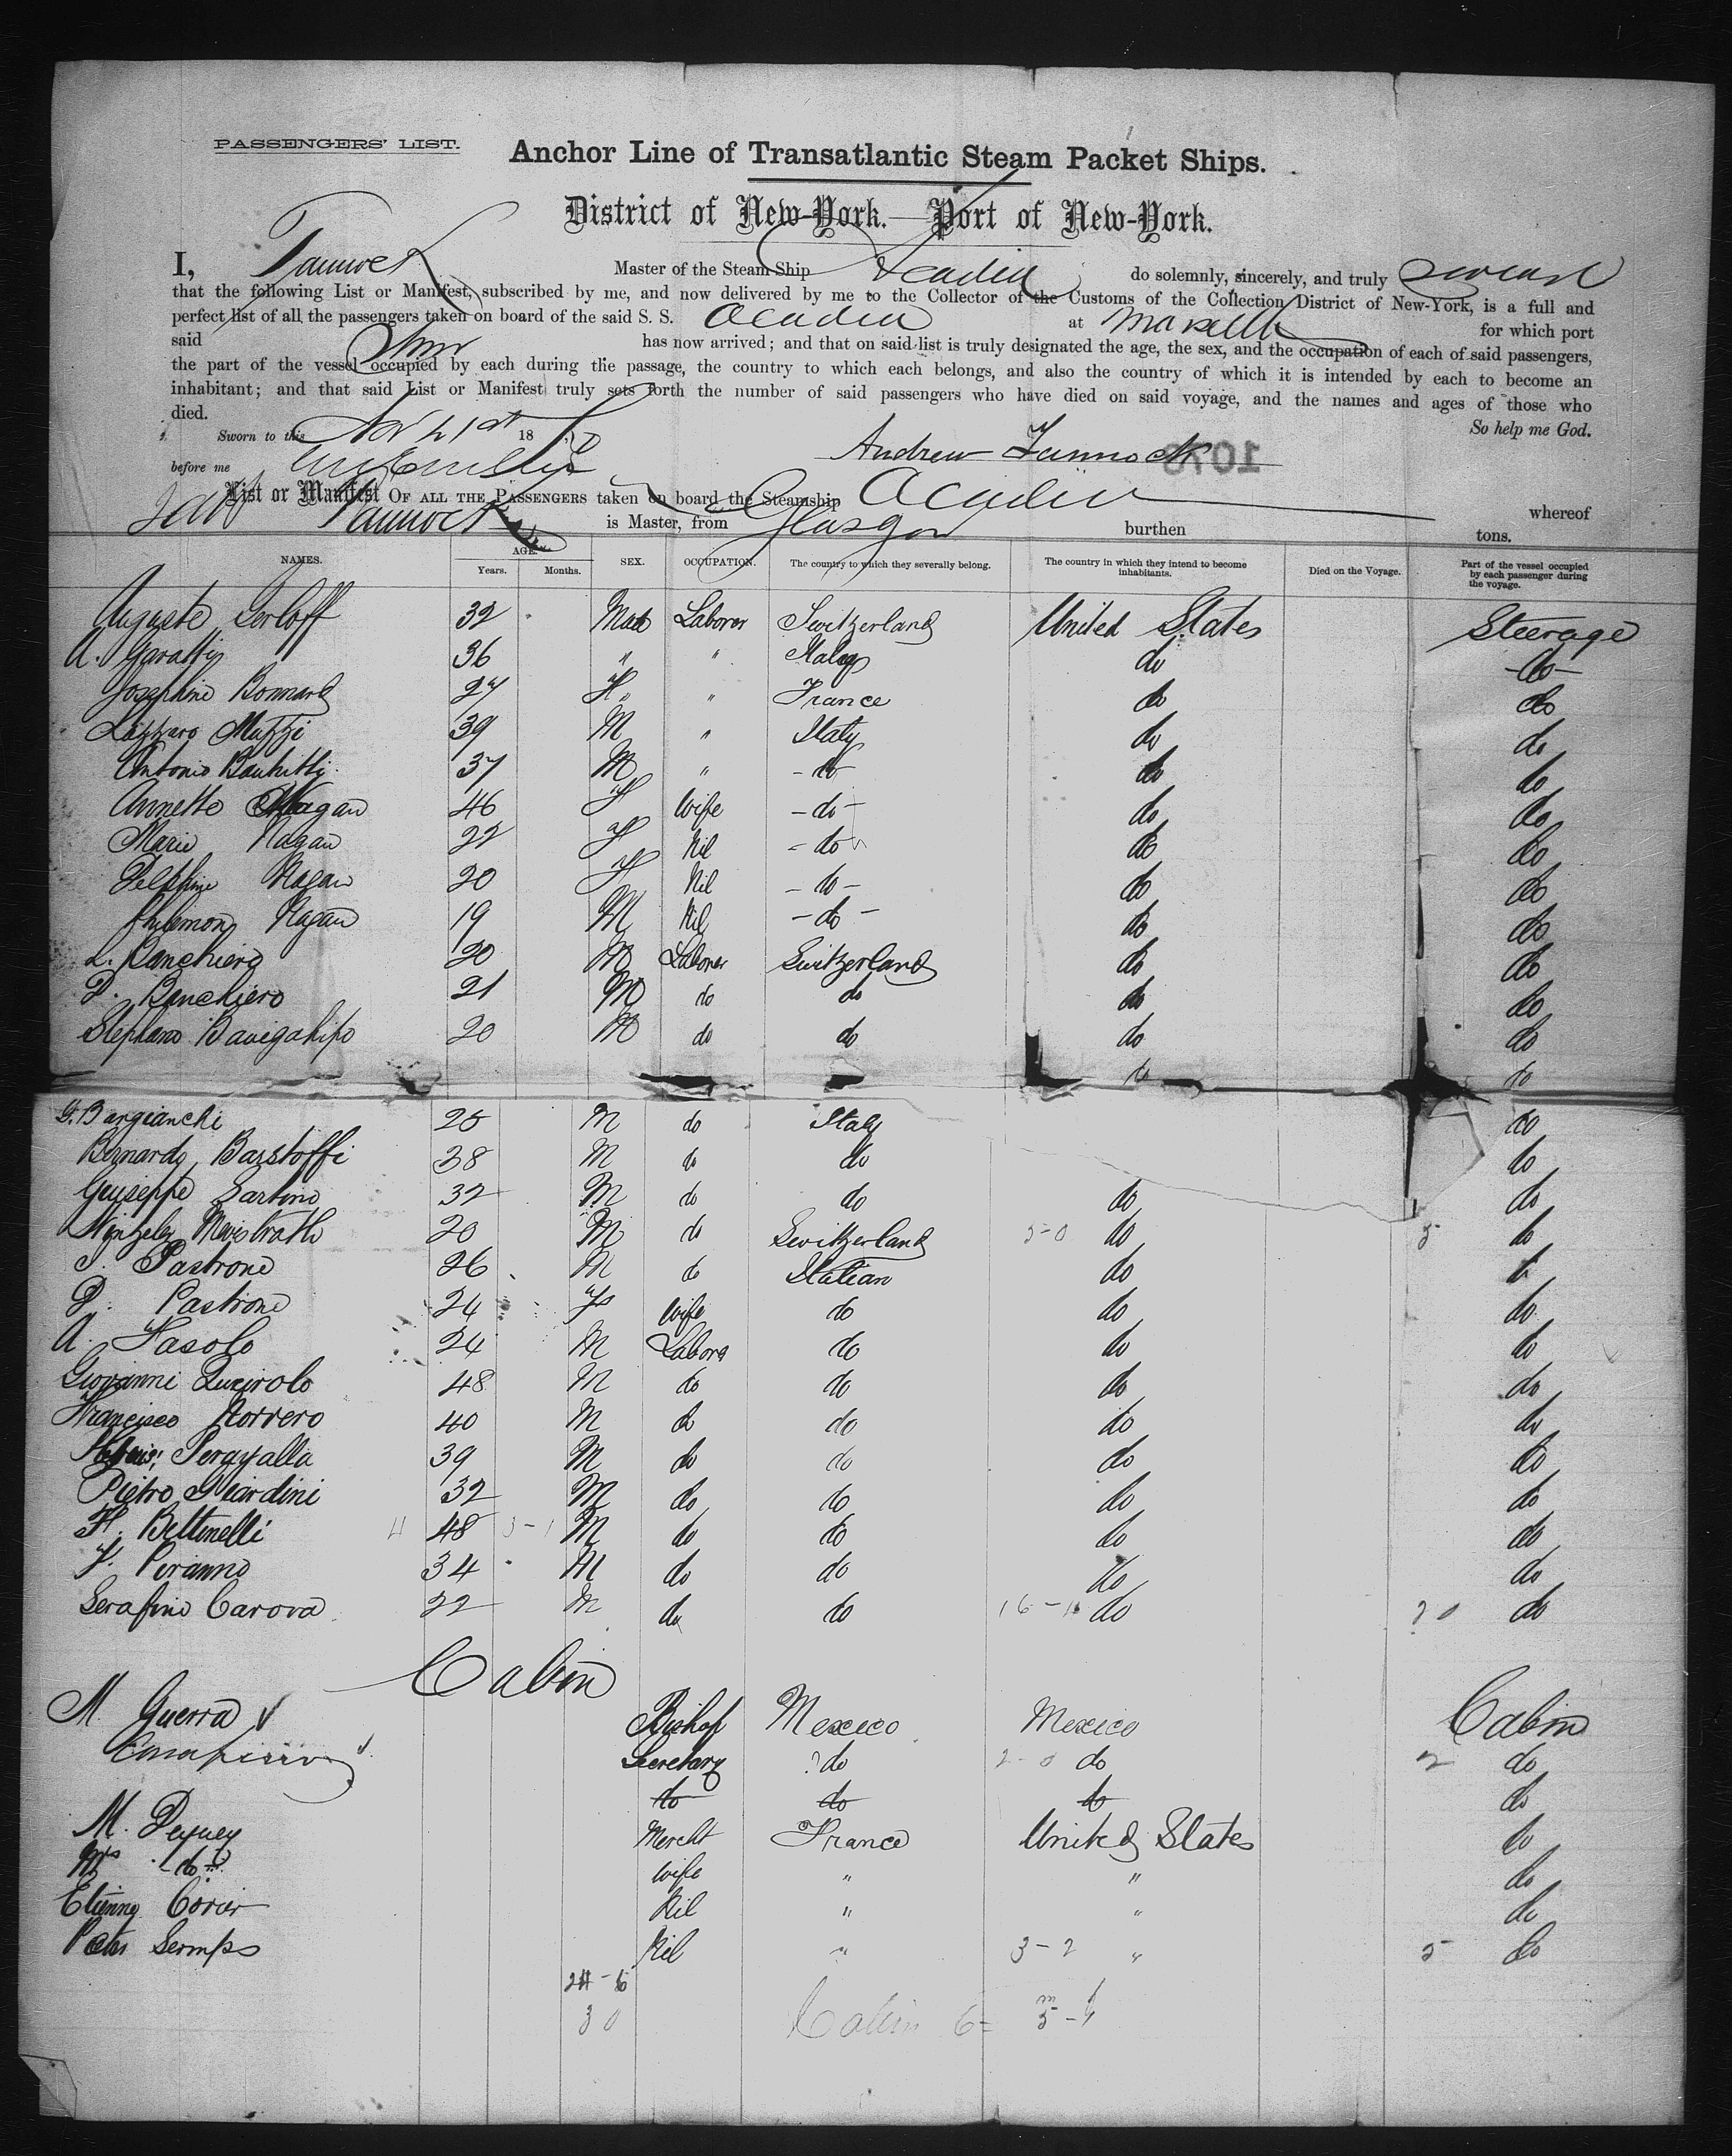 PASSENGERS' LIST.
Anchor Line of Transatlantic Steam Packet Ships.
District of New-York.—Port of New-York.
I, Tannock Master of the Steam Ship Acadia do solemnly, sincerely, and truly swear
that the following List or Manifest, subscribed by me, and now delivered by me to the Collector of the Customs of the Collection District of New-York, is a full and
perfect list of all the passengers taken on board of the said S. S. Acadia at for which port
said has now arrived; and that on said list is truly designated the age, the sex, and the occupation of each of said passengers,
the part of the vessel occupied by each during the passage, the country to which each belongs, and also the country of which it is intended by each to become an
inhabitant; and that said List or Manifest truly sets forth the number of said passengers who have died on said voyage, and the names and ages of those who
died. So help me God.
Sworn to this Nov 21st 18
Andrew Tannock
1078
before me
List or Manifest OF ALL THE PASSENGERS taken on board the Steamship Acadia whereof
Tannock is Master, from Glasgow burthen tons.
NAMES. AGE. Years. Months. SEX. OCCUPATION. The country to which they severally belong. The country in which they intend to become inhabitants. Died on the Voyage. Part of the vessel occupied by each passenger during the voyage.
Auguste Gerloff 32 Male Laborer Switzerland United States Steerage
A. Garatti 36 " " Italy do do
Josephine Bonnard 27 F " France do do
Lazzaro Muzzi 39 M " Italy do do
Antonio 37 M " do do do
Annette Nagan 46 F Wife do do do
Marie Nagan 22 F Nil do do do
Delphine Nagan 20 F Nil do do do
Philemon Nagan 19 M Nil do do do
L. Banchiero 20 M Laborer Switzerland do do
P. Banchiero 21 M do do do do
Stephano 20 M do do do do
do do
G. Bargianchi 25 M do Italy do
Bernardo Barstoffi 38 M do do do
Giuseppe Sartino 32 M do do do do
20 M do Switzerland 5-0 do 5 do
Pastrone 26 M do Italian do do
P. Pastrone 24 F Wife do do do
A. Fasolo 24 M Labore do do do
Giovanni Queirolo 48 M do do do do
Francisco Norrero 40 M do do do do
39 M do do do do
Pietro Giardini 32 M do do do do
F. Bettinelli 48 M do do do do
F. Peranno 34 M do do do do
Serafino Carova 22 M do do do do
Cabin
M. Guerra Bishop Mexico Mexico Cabin
Secretary do 2-0 do 2 do
do do do do
M. Mercht France United States do
Mrs do Wife " " do
Etienne Nil " " do
Nil " 3-2 " 5 do
24-6
30 Cabin 6 =